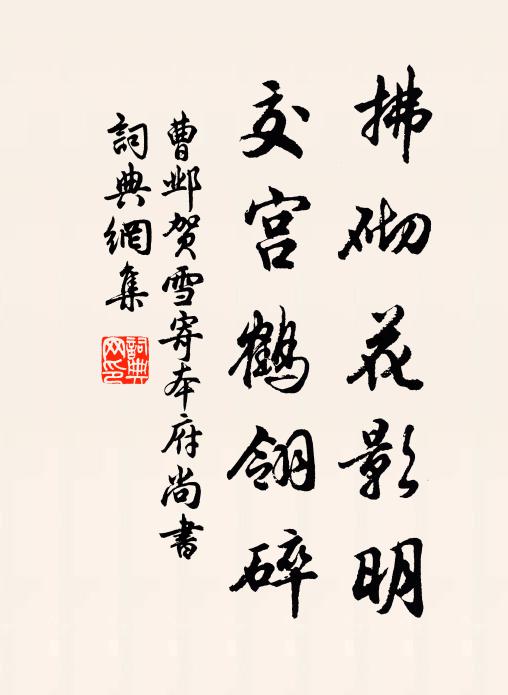 拂砌花影明
交宫鶴翎碎
曹邺贺雪寄本府尚書
詞典網集
詞典網印